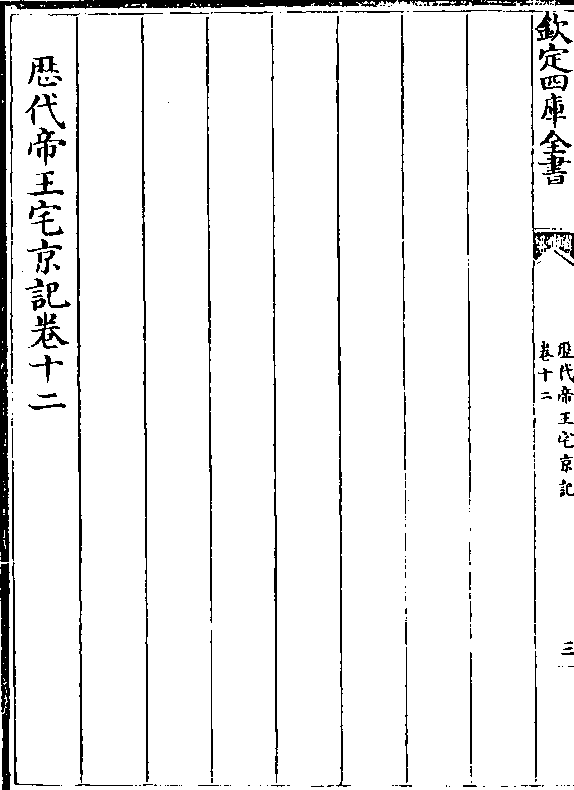 欽定四庫全書
歴代帝王宅京記
卷十二
三
歴代帝王宅京記卷十二